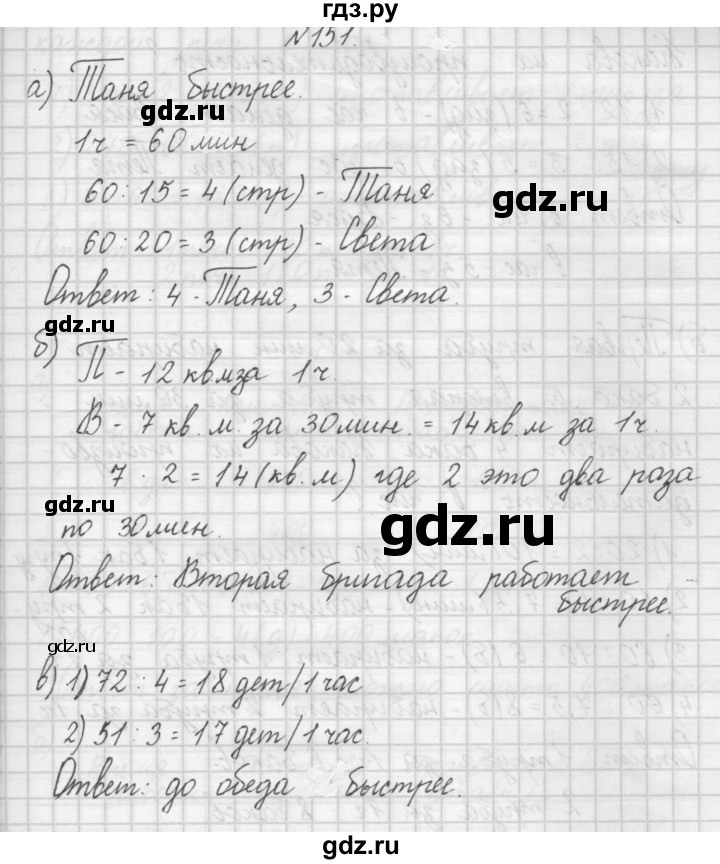 гдз.ру
N151.
а) Таня быстрее.
gdz.ru
1ч = 60 мин
60 : 15 = 4 (стр) - Таня
gdz.ru
60 : 20 = 3 (стр) - Света
Ответ: 4 - Таня, 3 - Света.
gdz.ru
б)
П - 12 кв.м за 1 ч.
В - 7 кв. м. за 30 мин. = 14 кв. м за 1 ч.
7 · 2 = 14 (кв. м) где 2 это два раза
gdz.ru
по 30 мин.
gdz.ru
Ответ: Вторая бригада работает
быстрее.
gdz.ru
в) 1) 72 : 4 = 18 дет/1 час
2) 51 : 3 = 17 дет/1 час.
gdz.ru
Ответ: до обеда быстрее.
gdz.ru
gdz.ru